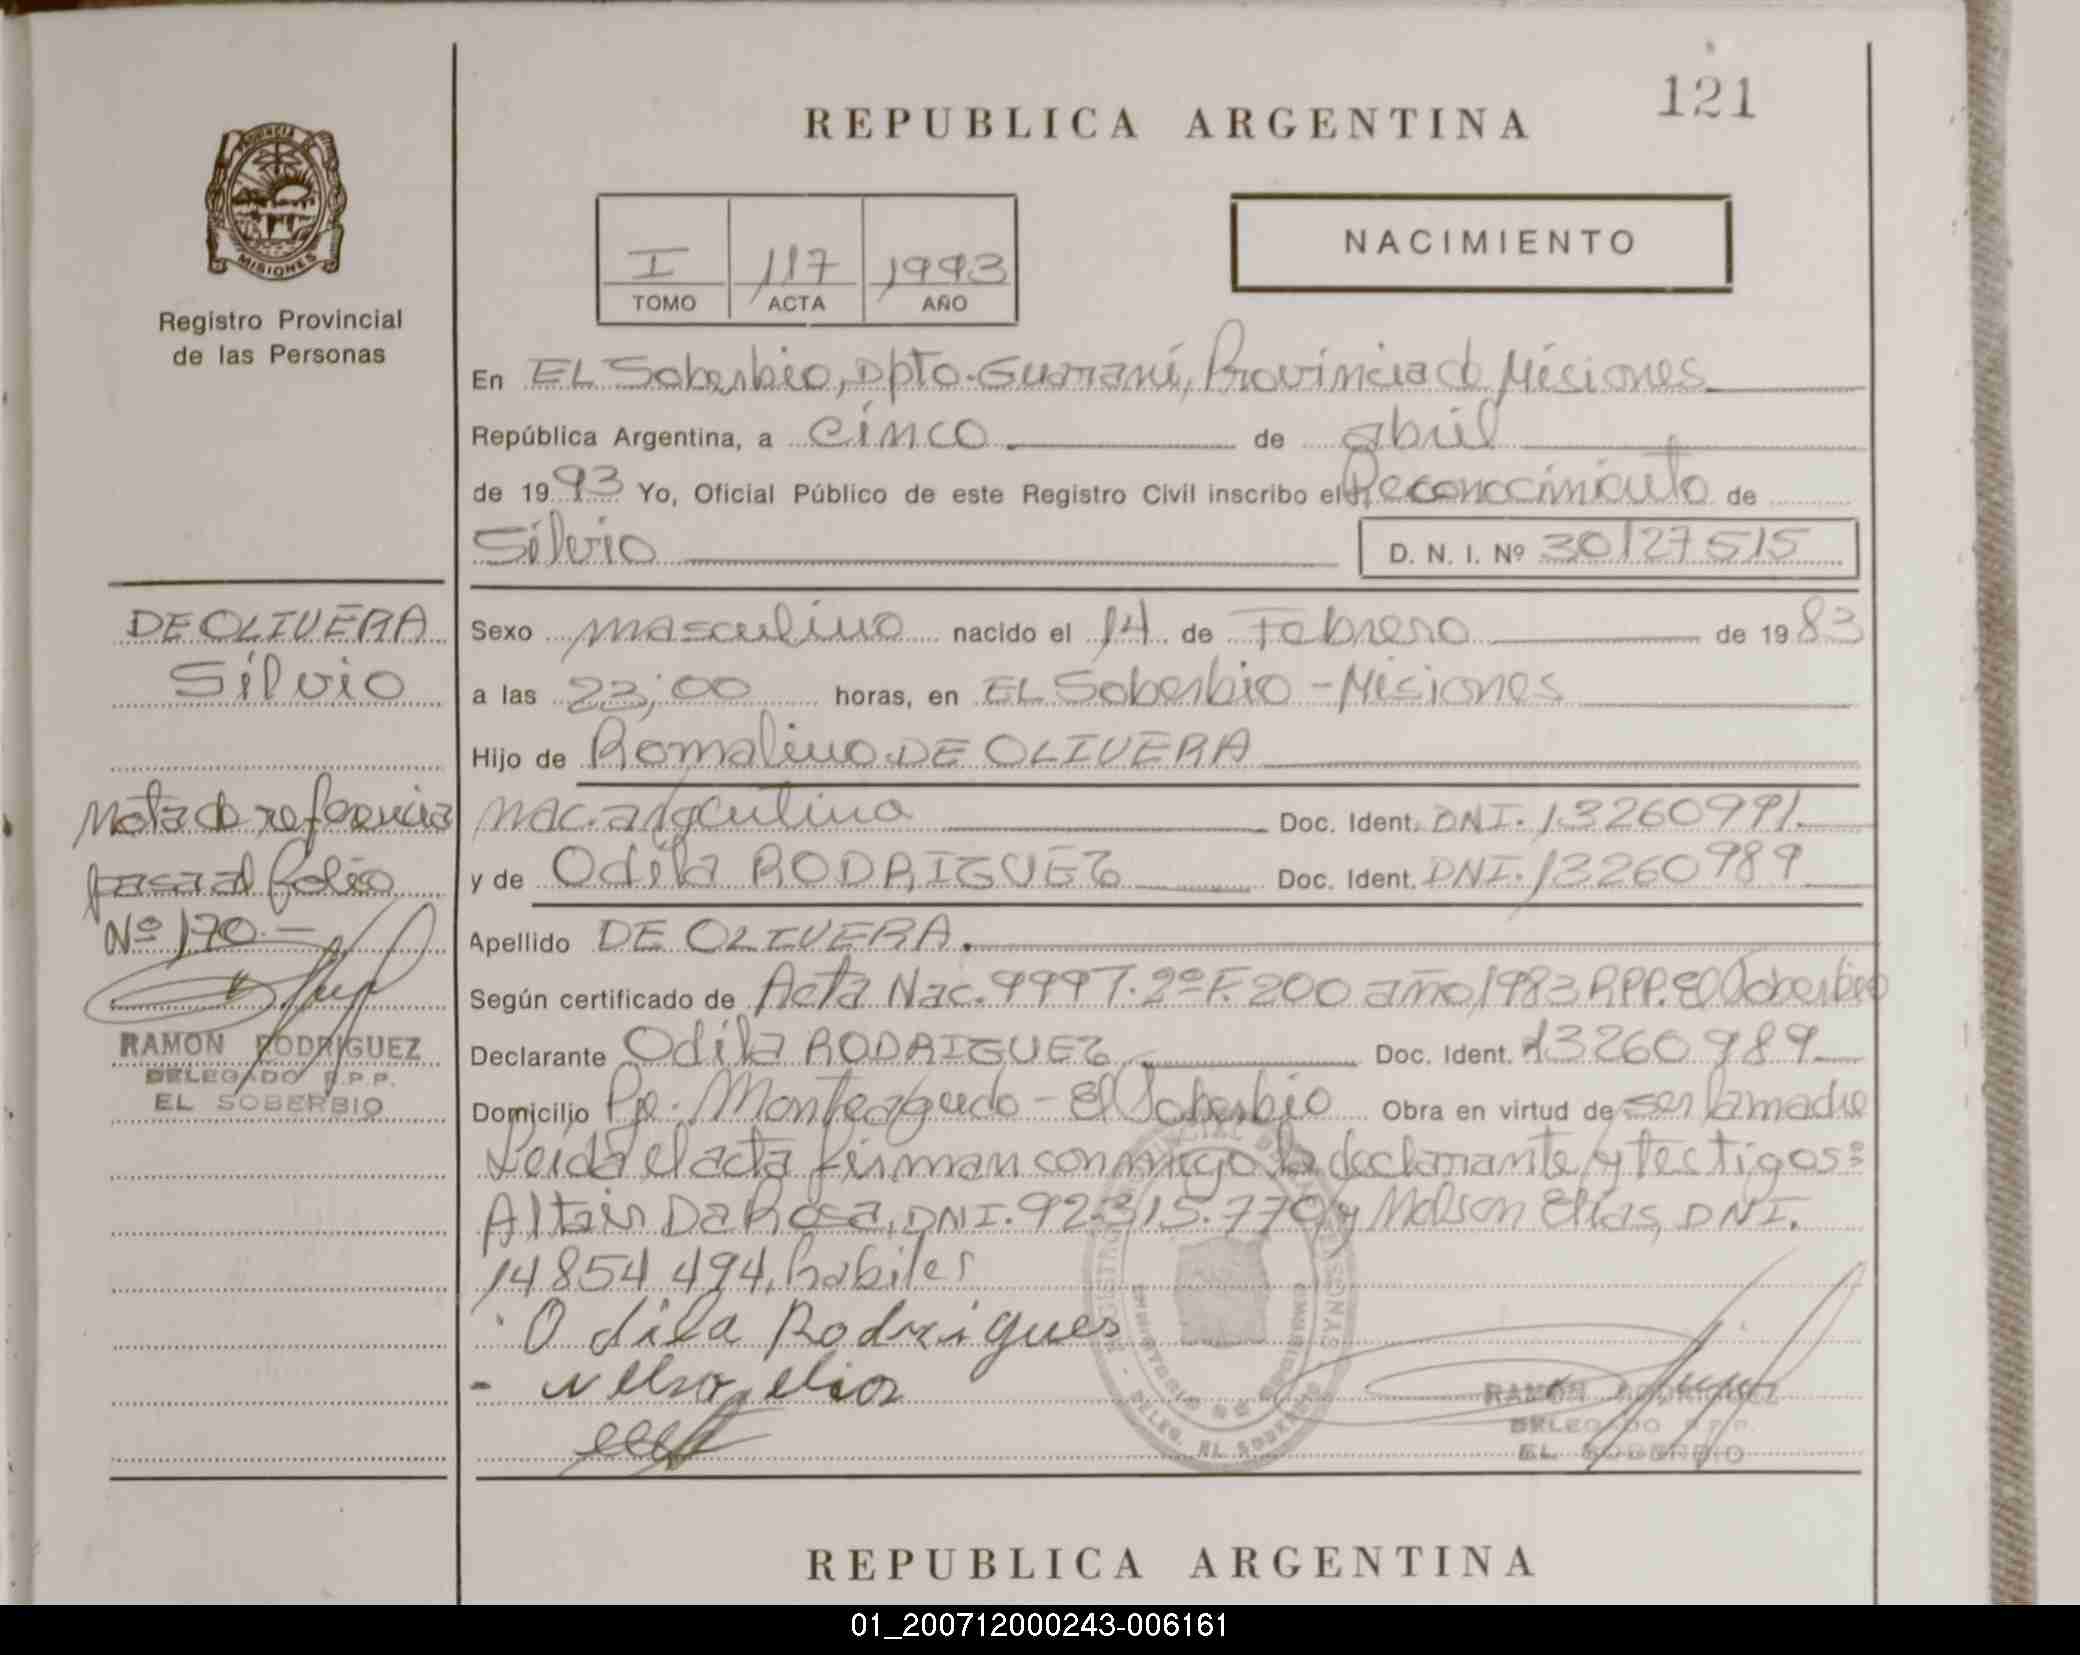 121
REPUBLICA ARGENTINA
PROVINCIA
MISIONES
Registro Provincial
de las Personas
I 117 1993
TOMO ACTA AÑO
NACIMIENTO
En EL Soberbio, Dpto. Guaraní, Provincia de Misiones
República Argentina, a cinco de abril
de 1993 Yo, Oficial Público de este Registro Civil inscribo el Reconocimiento de
Silvio D. N. I. Nº 30127515
DE OLIVERA
Silvio
Nota de referencia
pasa al folio
Nº 170.-
RAMON RODRIGUEZ
DELEGADO R.P.P.
EL SOBERBIO
Sexo masculino nacido el 14 de Febrero de 1983
a las 23;00 horas, en EL Soberbio - Misiones
Hijo de Romalino DE OLIVERA
nac. argentina Doc. Ident. DNI. 13260991.
y de Odila RODRIGUEZ Doc. Ident. DNI. 13260989
Apellido DE OLIVERA.
Según certificado de Acta Nac. 999 T. 2º F. 200 año 1983 R.P.P. El Soberbio
Declarante Odila RODRIGUEZ Doc. Ident. 13260989
Domicilio Pje. Monteagudo - El Soberbio Obra en virtud de ser la madre
Leída el acta firman conmigo la declarante y testigos:
Altair Da Rosa, DNI. 92.315.770 y Nelson Elías, DNI.
14854494, habiles
Odila Rodrigues
- Nelson elias
RAMON RODRIGUEZ
DELEGADO R.P.P.
EL SOBERBIO
REPUBLICA ARGENTINA
01_200712000243-006161